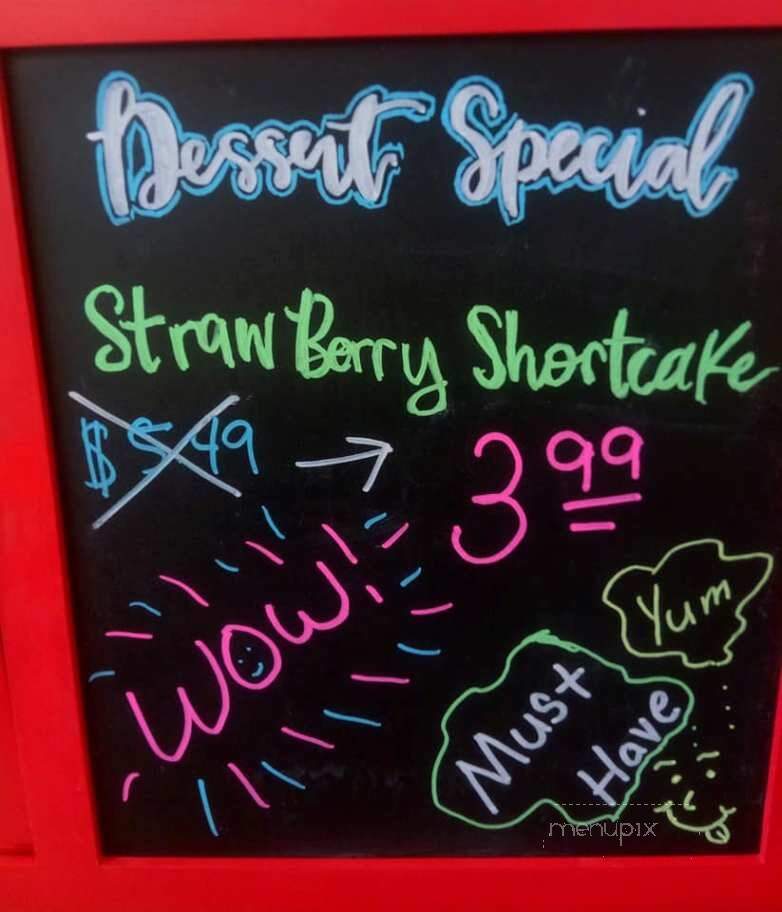 Dessert Special
StrawBerry Shortcake
$5.49 → 3.99
WOW!
Yum
Must
Have
menupix